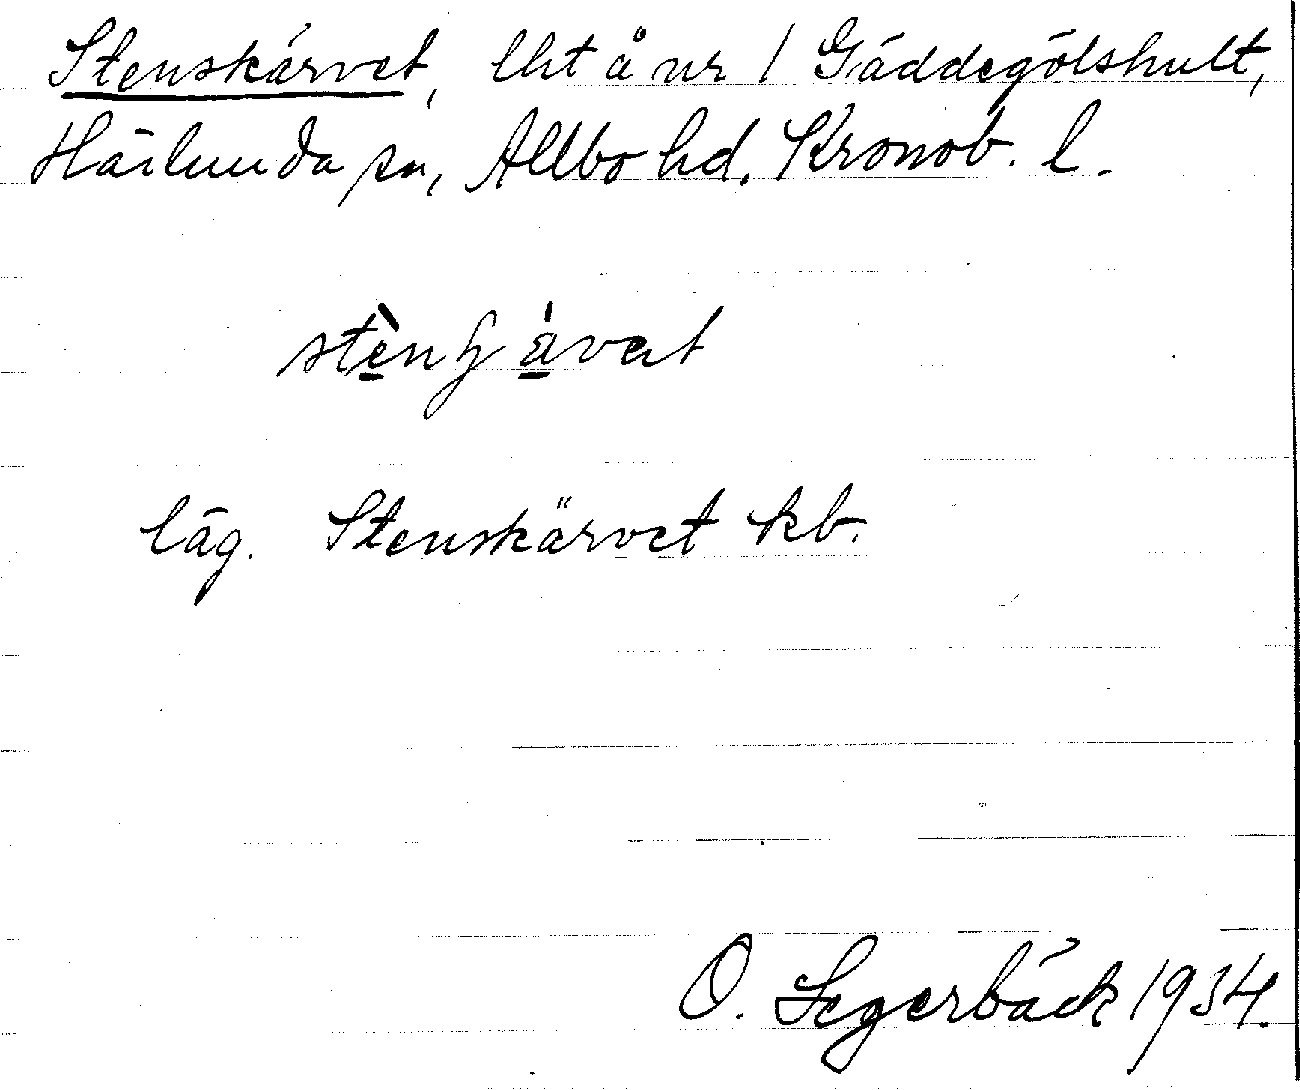 Stenskärvet, lht å nr 1 Gäddegölshult,
Härlunda sn, Allbo hd. Kronob. l.
läg. Stenskärvet kb.
O. Segerbäck 1934.